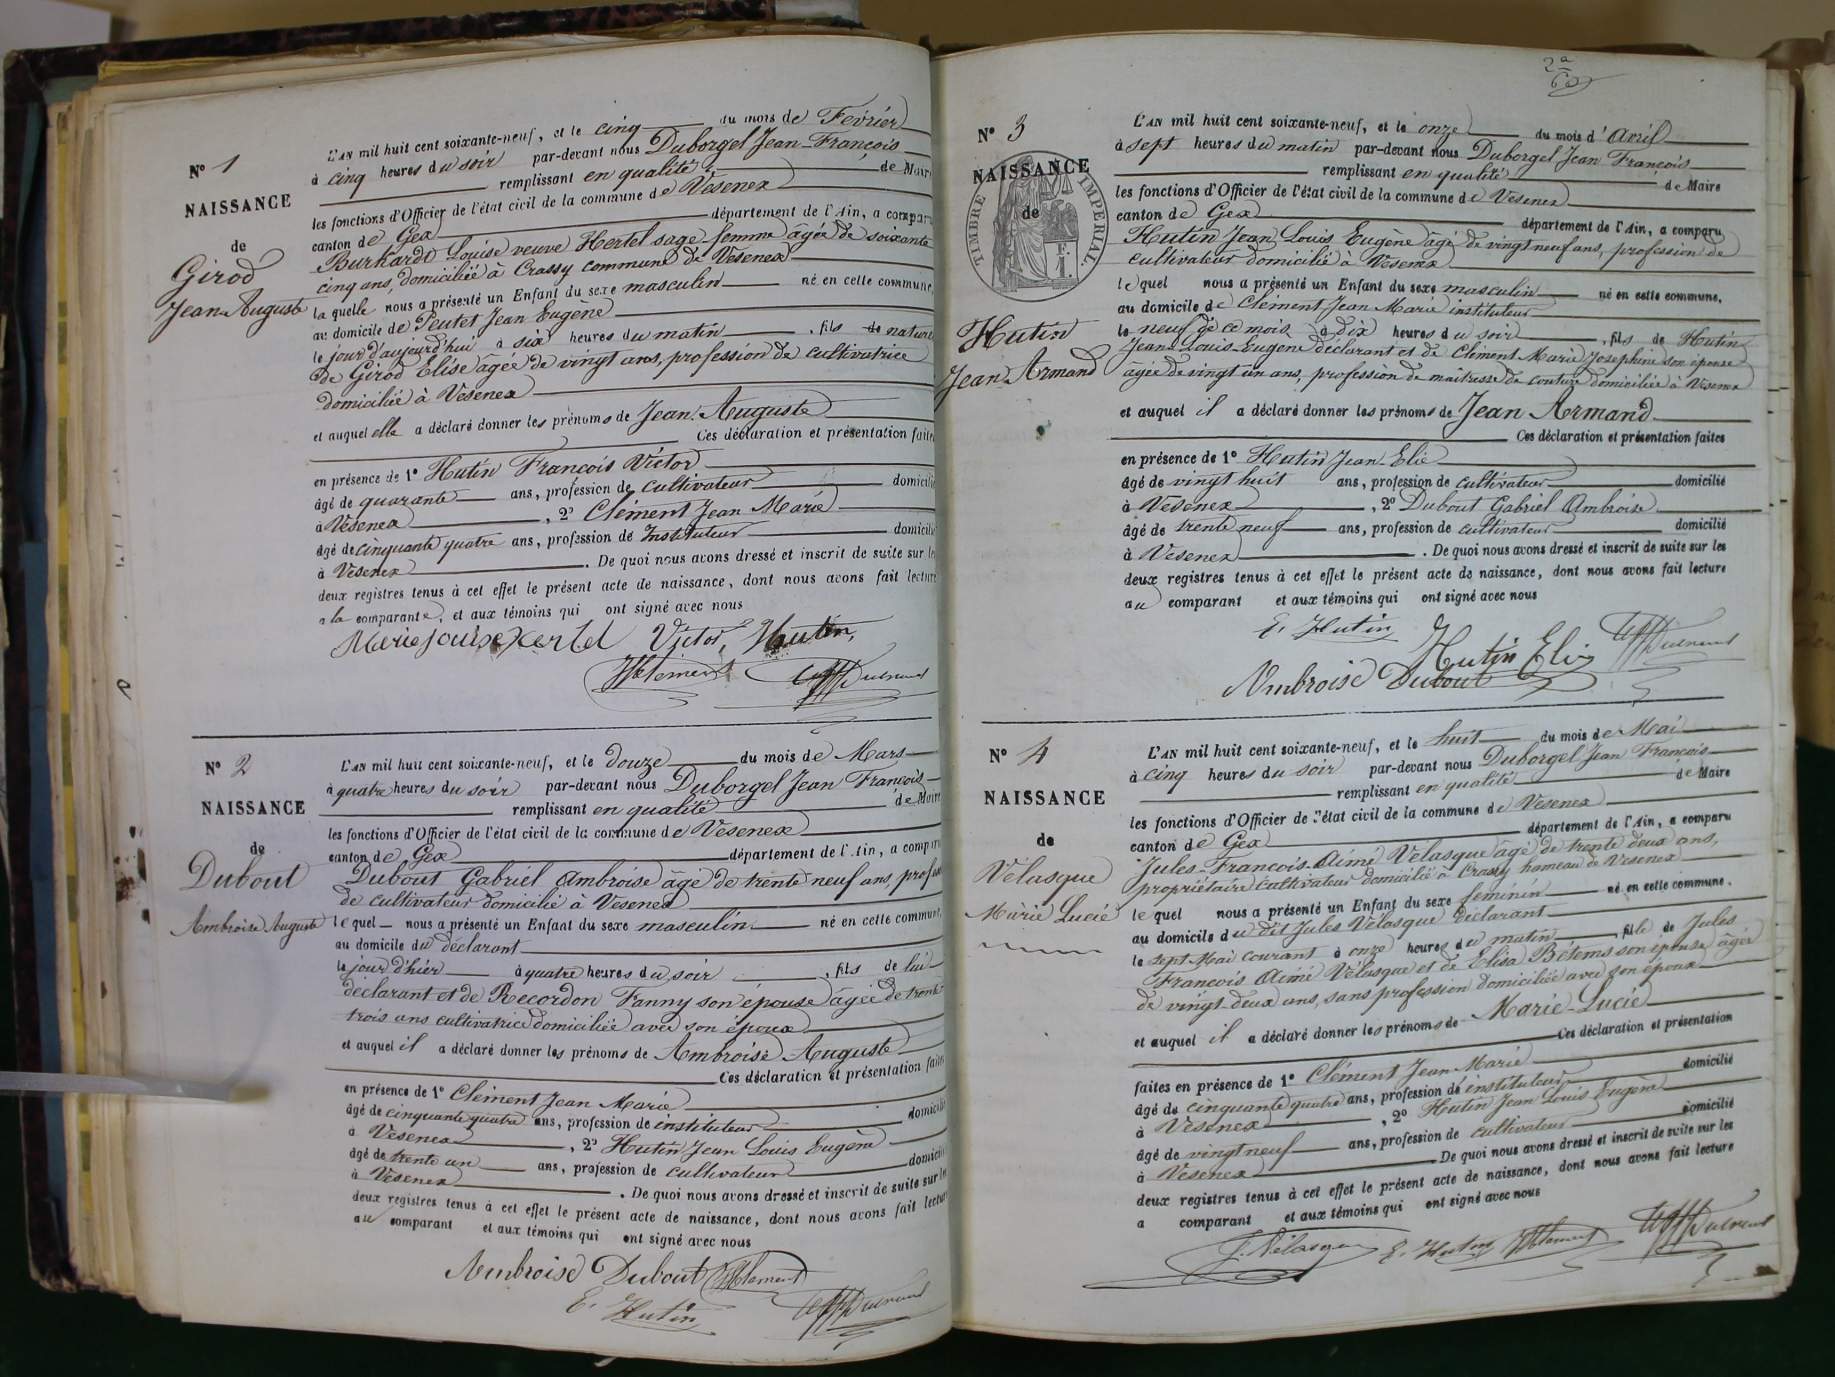 N° 1
NAISSANCE
de
Girod
Jean-Auguste
L'AN mil huit cent soixante-neuf, et le cinq du mois de Février
à cinq heures du soir par-devant nous Duborgel Jean-François
remplissant en qualité de Maire
les fonctions d'Officier de l'état civil de la commune de Vesenex
canton de Gex département de l'Ain, a comparu
Burkardt Louise veuve Hertel sage femme âgée de soixante
cinq ans, domiciliée à Crassy commune de Vesenex
laquelle nous a présenté un Enfant du sexe masculin né en cette commune,
au domicile de Peutet Jean Eugène
le jour d'aujourd'hui à six heures du matin, fils de naturel
de Girod Elise âgée de vingt ans, profession de cultivatrice
domiciliée à Vesenex
et auquel elle a déclaré donner les prénoms de Jean Auguste
Ces déclaration et présentation faites
en présence de 1° Hutin François Victor
âgé de quarante ans, profession de cultivateur domicilié
à Vesenex, 2° Clément Jean Marie
âgé de cinquante quatre ans, profession de Instituteur domicilié
à Vesenex. De quoi nous avons dressé et inscrit de suite sur les
deux registres tenus à cet effet le présent acte de naissance, dont nous avons fait lecture
a la comparante, et aux témoins qui ont signé avec nous
Marie Louise Hertel Victor Hutin,
JM Clement
N° 2
NAISSANCE
de
Dubout
Ambroise Auguste
L'AN mil huit cent soixante-neuf, et le douze du mois de Mars
à quatre heures du soir par-devant nous Duborgel Jean François
remplissant en qualité de Maire
les fonctions d'Officier de l'état civil de la commune de Vesenex
canton de Gex département de l'Ain, a comparu
Dubout Gabriel Ambroise âgé de trente neuf ans, profession
de cultivateur domicilié à Vesenex
lequel nous a présenté un Enfant du sexe masculin né en cette commune,
au domicile du déclarant
le jour d'hier à quatre heures du soir, fils de lui
déclarant et de Recordon Fanny son épouse âgée de trente
trois ans cultivatrice domiciliée avec son époux
et auquel il a déclaré donner les prénoms de Ambroise Auguste
Ces déclaration et présentation faites
en présence de 1° Clément Jean Marie
âgé de cinquante quatre ans, profession de instituteur domicilié
à Vesenex, 2° Hutin Jean Louis Eugène
âgé de trente un ans, profession de cultivateur domicilié
à Vesenex. De quoi nous avons dressé et inscrit de suite sur les
deux registres tenus à cet effet le présent acte de naissance, dont nous avons fait lecture
au comparant et aux témoins qui ont signé avec nous
Ambroise Dubout JM Clement
E. Hutin
2a
N° 3
NAISSANCE
de
TIMBRE IMPERIAL.
Hutin
Jean-Armand
L'AN mil huit cent soixante-neuf, et le onze du mois d'Avril
à sept heures du matin par-devant nous Duborgel Jean François
remplissant en qualité de Maire
les fonctions d'Officier de l'état civil de la commune de Vesenex
canton de Gex département de l'Ain, a comparu
Hutin Jean Louis Eugène âgé de vingt neuf ans, profession de
cultivateur domicilié à Vesenex
lequel nous a présenté un Enfant du sexe masculin né en cette commune,
au domicile de Clément Jean Marie instituteur
le neuf de ce mois à dix heures du soir, fils de Hutin
Jean-Louis-Eugène déclarant et de Clément Marie Joséphine son épouse
agée de vingt un ans, profession de maîtresse de couture domiciliée à Vesenex
et auquel il a déclaré donner les prénoms de Jean Armand
Ces déclaration et présentation faites
en présence de 1° Hutin Jean-Elie
âgé de vingt huit ans, profession de cultivateur domicilié
à Vesenex, 2° Dubout Gabriel Ambroise
âgé de trente neuf ans, profession de cultivateur domicilié
à Vesenex. De quoi nous avons dressé et inscrit de suite sur les
deux registres tenus à cet effet le présent acte de naissance, dont nous avons fait lecture
au comparant et aux témoins qui ont signé avec nous
E. Hutin
Hutin Elie
Ambroise Dubout
N° 4
NAISSANCE
de
Vélasque
Marie Lucie
L'AN mil huit cent soixante-neuf, et le huit du mois de Mai
à cinq heures du soir par-devant nous Duborgel Jean François
remplissant en qualité de Maire
les fonctions d'Officier de l'état civil de la commune de Vesenex
canton de Gex département de l'Ain, a comparu
Jules-François-Aimé Velasque âgé de trente deux ans,
propriétaire cultivateur domicilié à Crassy hameau de Vesenex
lequel nous a présenté un Enfant du sexe féminin né en cette commune,
au domicile du dit Jules Vélasque déclarant
le sept Mai courant à onze heures du matin, fille de Jules
François Aimé Vélasque et de Elisa Bétems son épouse âgée
de vingt deux ans, sans profession domiciliée avec son époux
et auquel il a déclaré donner les prénoms de Marie-Lucie
Ces déclaration et présentation
faites en présence de 1° Clément Jean Marie domicilié
âgé de cinquante quatre ans, profession de instituteur
à Vesenex, 2° Hutin Jean Louis Eugène
âgé de vingt neuf ans, profession de cultivateur domicilié
à Vesenex De quoi nous avons dressé et inscrit de suite sur les
deux registres tenus à cet effet le présent acte de naissance, dont nous avons fait lecture
a comparant et aux témoins qui ont signé avec nous
J. Vélasque E. Hutin JM Clement